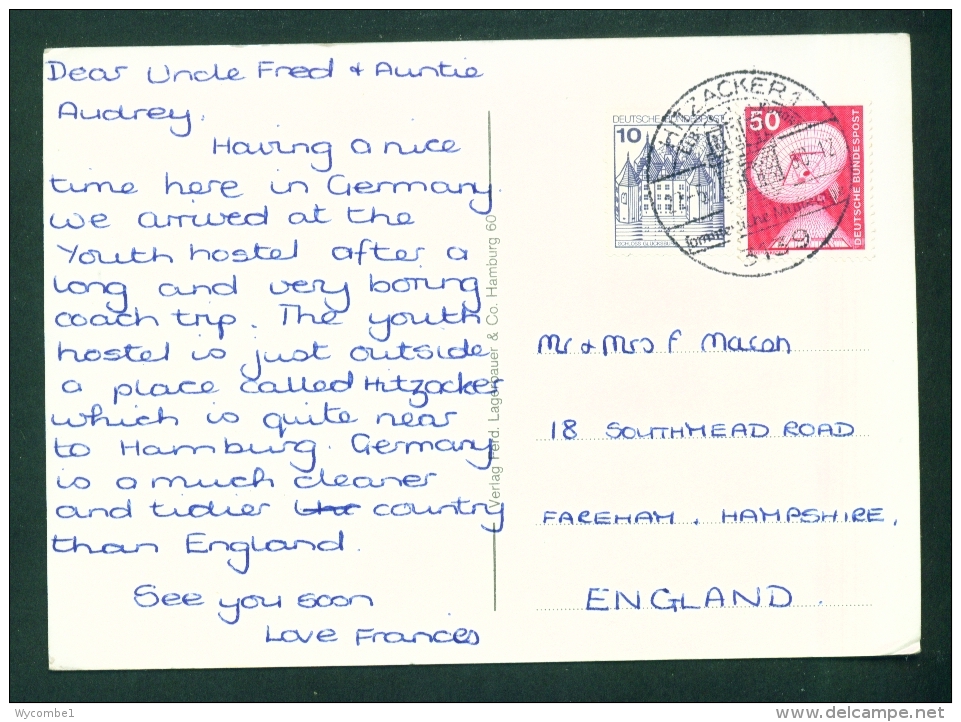 Dear Uncle Fred + Auntie
Audrey,
Having a nice
time here in Germany.
we arrived at the
Youth hostel after a
long and very boring
coach trip. The youth
hostel is just outside
a place called Hitzacker
which is quite near
to Hamburg. Germany
is a much cleaner
and tidier country
than England.
See you soon
Love Frances
Verlag Ferd. Lagerbauer & Co. Hamburg 60
DEUTSCHE BUNDESPOST
10
SCHLOSS GLÜCKSBURG
50
DEUTSCHE BUNDESPOST
HITZACKER 1
3139
Mr + Mrs F
18 SOUTHMEAD ROAD
FAREHAM, HAMPSHIRE,
ENGLAND.
Wycombe1
www.delcampe.net